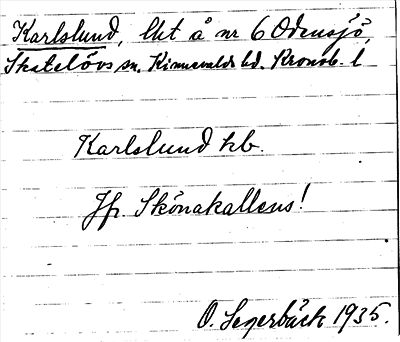 Karlslund, lht å nr 6 Odensjö,
Skatelövs sn. Kinnevalds hd. Kronob. l
Karlslund kb.
Jfr Skönakallens!
O. Segerbäck 1935.